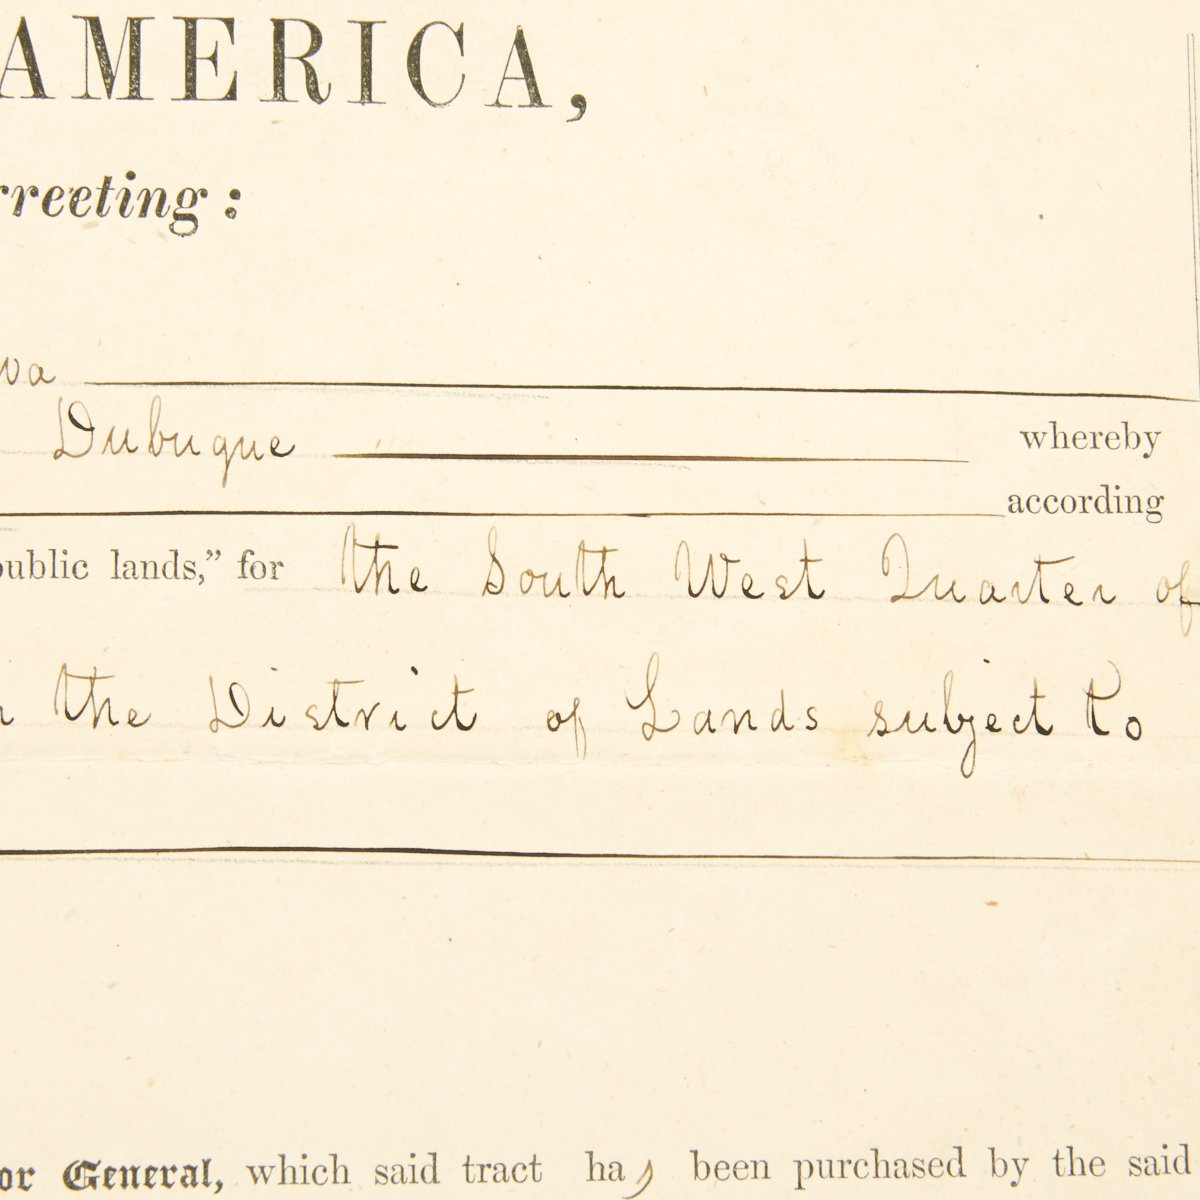 AMERICA,
reeting:
wa
Dubuque whereby
according
public lands," for the South West Quarter of
the District of Lands subject to
or General, which said tract has been purchased by the said